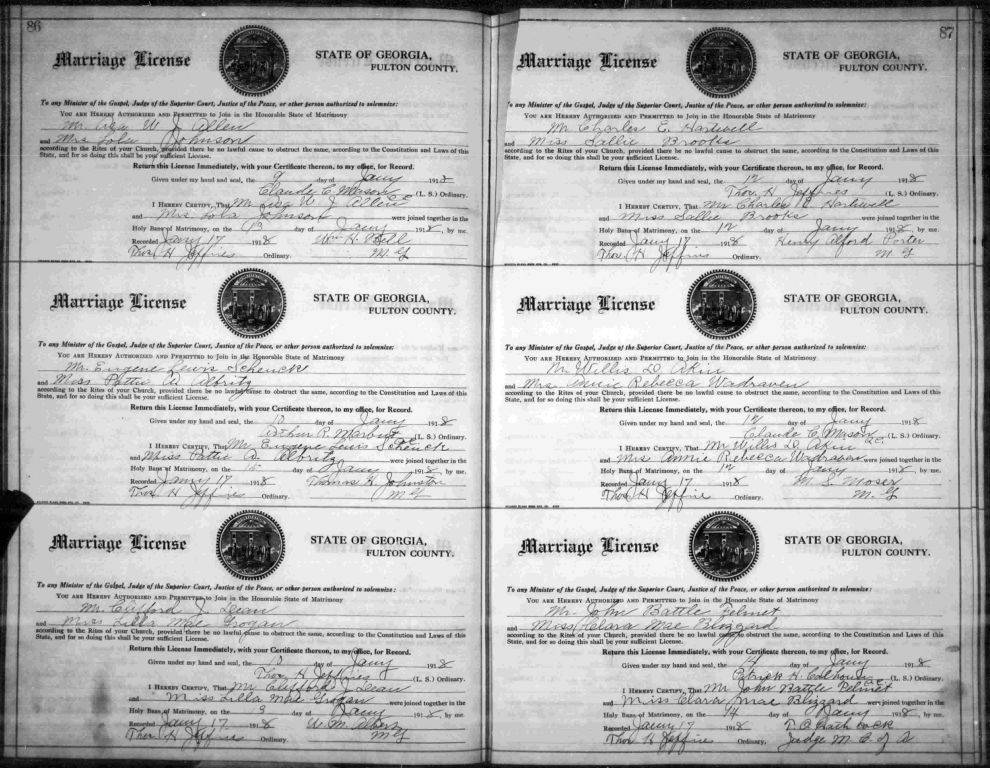 86
Marriage License
STATE OF GEORGIA,
FULTON COUNTY.
To any Minister of the Gospel, Judge of the Superior Court, Justice of the Peace, or other person authorized to solemnize:
YOU ARE HEREBY AUTHORIZED AND PERMITTED to Join in the Honorable State of Matrimony
Mr. W J Allen
and Mrs Lola Johnson
according to the Rites of your Church, provided there be no lawful cause to obstruct the same, according to the Constitution and Laws of this
State, and for so doing this shall be your sufficient License.
Return this License Immediately, with your Certificate thereon, to my office, for Record.
Given under my hand and seal, the 9 day of Jany 1918
Claude C Mason (L. S.) Ordinary.
I HEREBY CERTIFY, That Mr W J Allen
and Mrs Lola Johnson were joined together in the
Holy Bans of Matrimony, on the 13 day of Jany 1918, by me.
Recorded Jany 17 1918 Wm H Bell
Thos H Jeffries Ordinary. M G
Marriage License
STATE OF GEORGIA,
FULTON COUNTY.
To any Minister of the Gospel, Judge of the Superior Court, Justice of the Peace, or other person authorized to solemnize:
YOU ARE HEREBY AUTHORIZED AND PERMITTED to Join in the Honorable State of Matrimony
Mr. Eugene Lewis Schenck
and Miss Pattie A Albritz
according to the Rites of your Church, provided there be no lawful cause to obstruct the same, according to the Constitution and Laws of this
State, and for so doing this shall be your sufficient License.
Return this License Immediately, with your Certificate thereon, to my office, for Record.
Given under my hand and seal, the day of Jany 1918
Arthur R. Marbut (L. S.) Ordinary.
I HEREBY CERTIFY, That Mr Eugene Lewis Schenck
and Miss Pattie A. Albritz were joined together in the
Holy Bans of Matrimony, on the day of Jany 1918, by me.
Recorded Jany 17 1918 Thomas H. Johnston
Thos H Jeffries Ordinary. M G
Marriage License
STATE OF GEORGIA,
FULTON COUNTY.
To any Minister of the Gospel, Judge of the Superior Court, Justice of the Peace, or other person authorized to solemnize:
YOU ARE HEREBY AUTHORIZED AND PERMITTED to Join in the Honorable State of Matrimony
Mr. Clifford J Dean
and Miss Lilla Mae Grogan
according to the Rites of your Church, provided there be no lawful cause to obstruct the same, according to the Constitution and Laws of this
State, and for so doing this shall be your sufficient License.
Return this License Immediately, with your Certificate thereon, to my office, for Record.
Given under my hand and seal, the day of Jany 1918
Thos H Jeffries (L. S.) Ordinary.
I HEREBY CERTIFY, That Mr Clifford J Dean
and Miss Lilla Mae Grogan were joined together in the
Holy Bans of Matrimony, on the 3 day of Jany 1918, by me.
Recorded Jany 17 1918 W M
Thos H Jeffries Ordinary. M G
87
Marriage License
STATE OF GEORGIA,
FULTON COUNTY.
To any Minister of the Gospel, Judge of the Superior Court, Justice of the Peace, or other person authorized to solemnize:
YOU ARE HEREBY AUTHORIZED AND PERMITTED to Join in the Honorable State of Matrimony
Mr Charles E. Hartwell
and Miss Sallie Brooks
according to the Rites of your Church, provided there be no lawful cause to obstruct the same, according to the Constitution and Laws of this
State, and for so doing this shall be your sufficient License.
Return this License Immediately, with your Certificate thereon, to my office, for Record.
Given under my hand and seal, the 12 day of Jany 1918
Thos. H Jeffries (L. S.) Ordinary.
I HEREBY CERTIFY, That Mr Charles E Hartwell
and Miss Sallie Brooks were joined together in the
Holy Bans of Matrimony, on the 12 day of Jany 1918, by me.
Recorded Jany 17. 1918 Henry Alford Porter
Thos. H Jeffries Ordinary. M G
Marriage License
STATE OF GEORGIA,
FULTON COUNTY.
To any Minister of the Gospel, Judge of the Superior Court, Justice of the Peace, or other person authorized to solemnize:
YOU ARE HEREBY AUTHORIZED AND PERMITTED to Join in the Honorable State of Matrimony
Mr Willis D. Akin
and Mrs Annie Rebecca Wadraven
according to the Rites of your Church, provided there be no lawful cause to obstruct the same, according to the Constitution and Laws of this
State, and for so doing this shall be your sufficient License.
Return this License Immediately, with your Certificate thereon, to my office, for Record.
Given under my hand and seal, the 12 day of Jany 1918
Claude C Mason (L. S.) Ordinary.
I HEREBY CERTIFY, That Mr Willis D. Akin
and Mrs Annie Rebecca Wadraven were joined together in the
Holy Bans of Matrimony, on the 12 day of Jany 1918, by me.
Recorded Jany 17. 1918 M. S. Moser
Thos H Jeffries Ordinary. M. G
Marriage License
STATE OF GEORGIA,
FULTON COUNTY.
To any Minister of the Gospel, Judge of the Superior Court, Justice of the Peace, or other person authorized to solemnize:
YOU ARE HEREBY AUTHORIZED AND PERMITTED to Join in the Honorable State of Matrimony
Mr. John Battle Pelmet
and Miss Clara Mae Blizzard
according to the Rites of your Church, provided there be no lawful cause to obstruct the same, according to the Constitution and Laws of this
State, and for so doing this shall be your sufficient License.
Return this License Immediately, with your Certificate thereon, to my office, for Record.
Given under my hand and seal, the 14 day of Jany 1918
Patrick H. Calhoun (L. S.) Ordinary.
I HEREBY CERTIFY, That Mr John Battle Pelmet
and Miss Clara Mae Blizzard were joined together in the
Holy Bans of Matrimony, on the 14 day of Jany 1918, by me.
Recorded Jany 17 1918 T. O Hathcock
Thos H Jeffries Ordinary. Judge M C of A